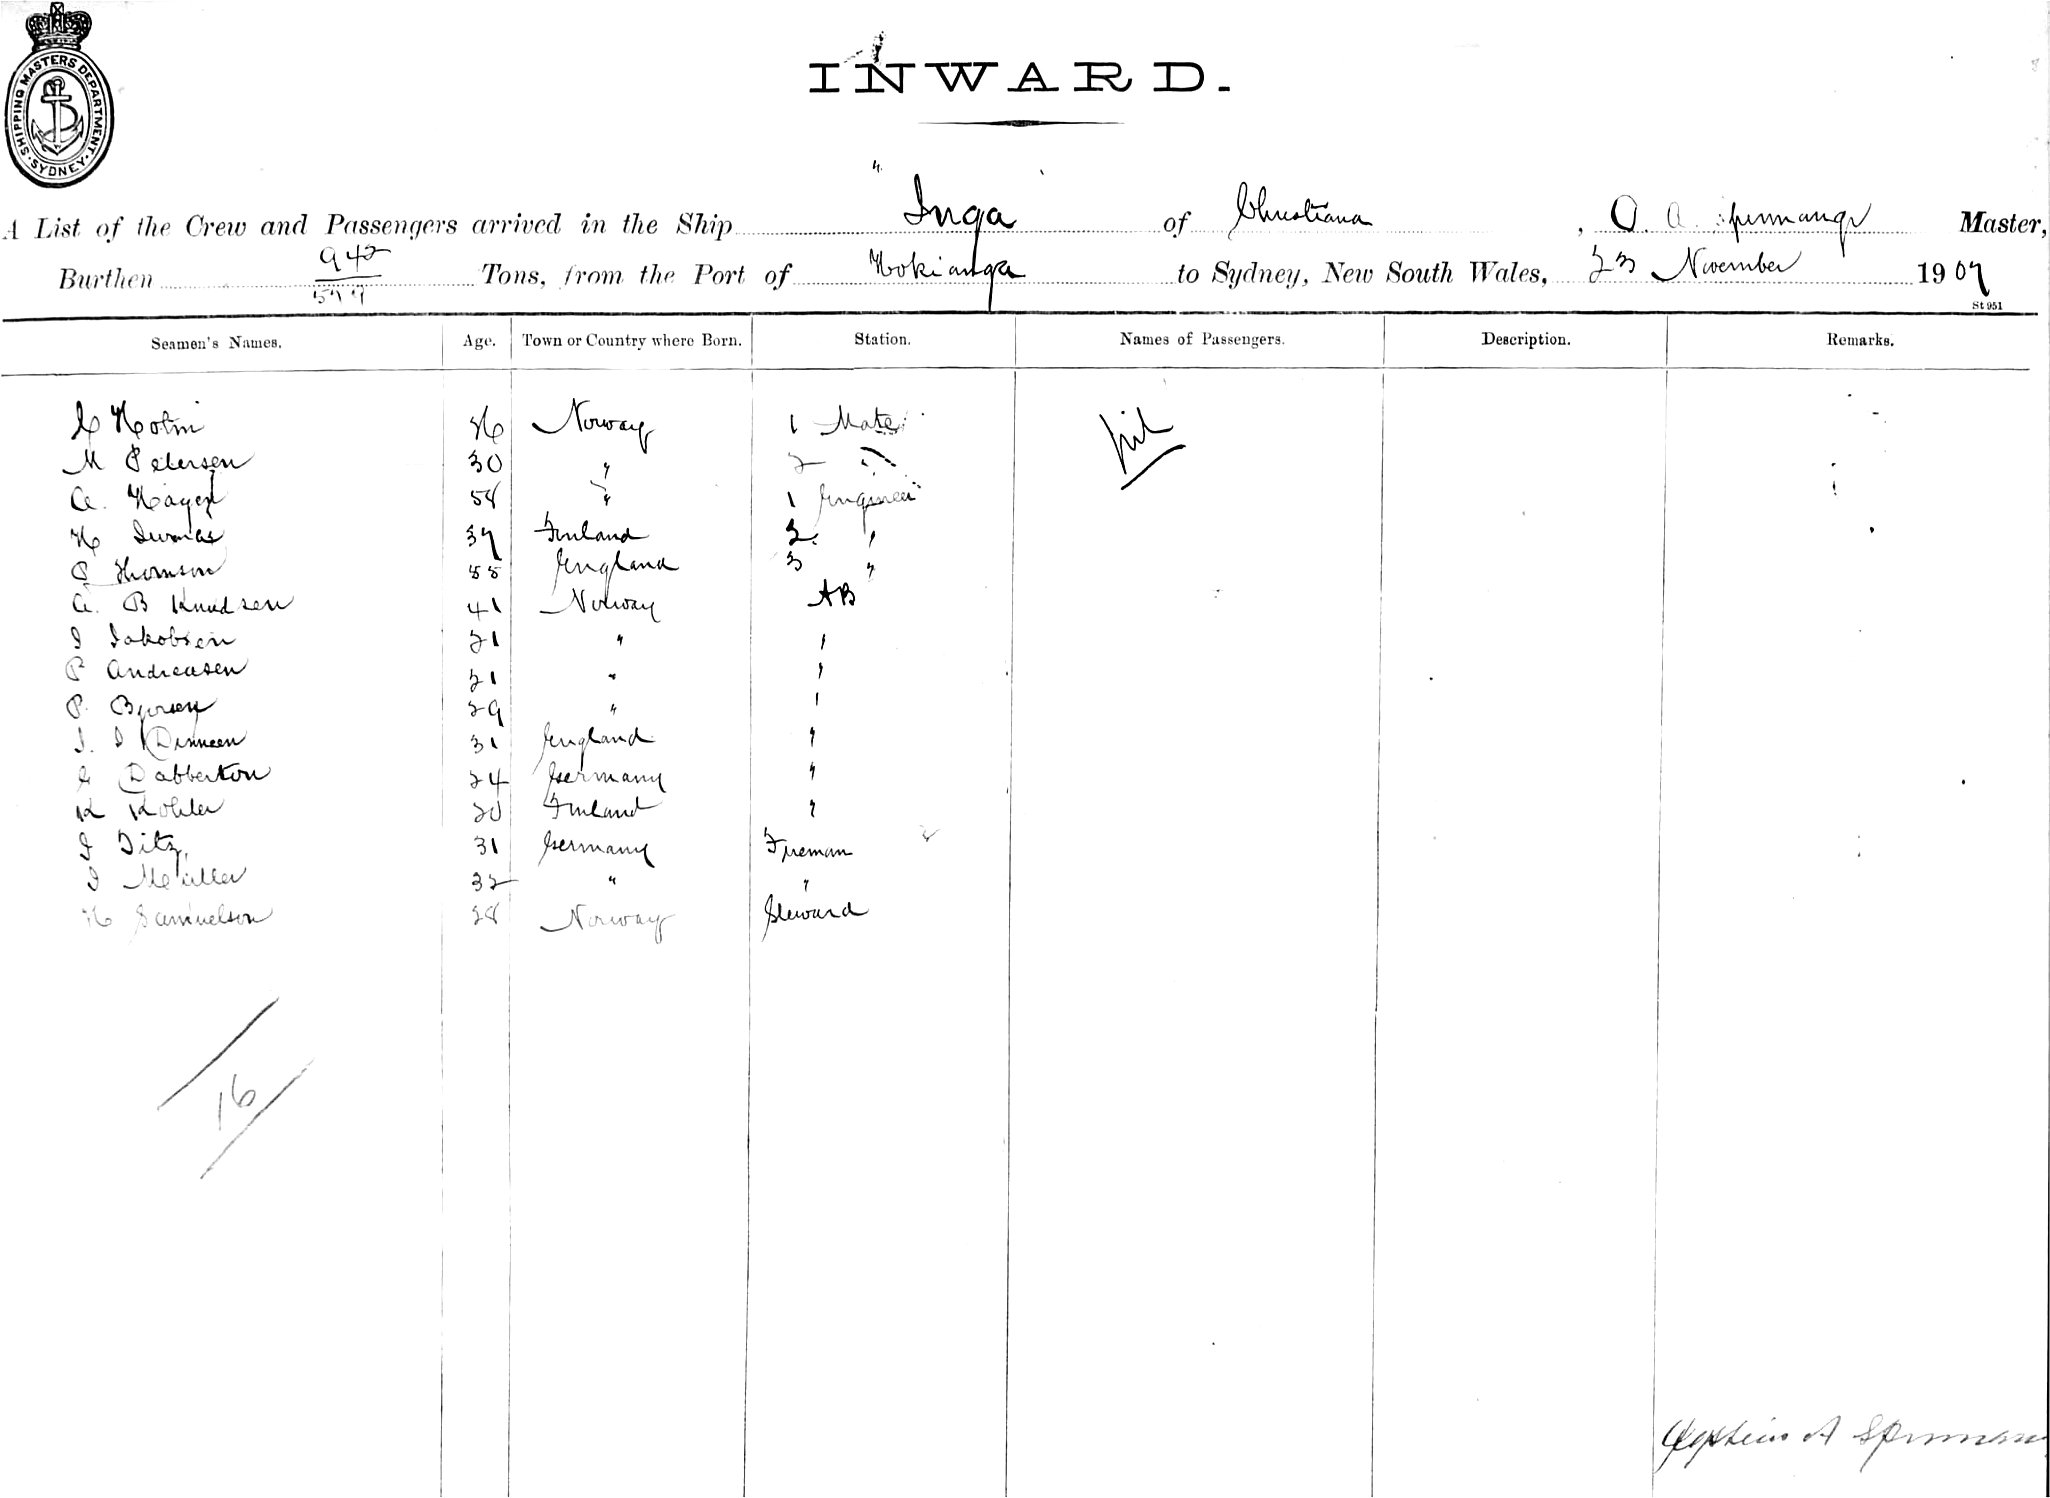 SHIPPING MASTERS DEPARTMENT · SYDNEY ·
INWARD.
A List of the Crew and Passengers arrived in the Ship "Inga" of Christiana, O. A. Master,
Burthen 942 Tons, from the Port of Hokianga to Sydney, New South Wales, 23 November 1907
597
St 951
Seamen's Names. Age. Town or Country where Born. Station. Names of Passengers. Description. Remarks.
Holm Norway 1 Mate nil
M Petersen 30 " 2 "
A. Hagen 58 " 1 Engineer
H 37 Finland 2. "
P Thomson 55 England 3 "
A. B Knudsen 41 Norway AB
I Jakobsen 21 " "
P Andreasen 21 " "
P. 29 " "
J. J Dinneen 31 England "
G Dabberkow 24 Germany "
K Kohler 20 Finland "
J Titz 31 Germany Fireman
J Meüller 32 " "
H Samuelson 28 Norway Steward
16
A